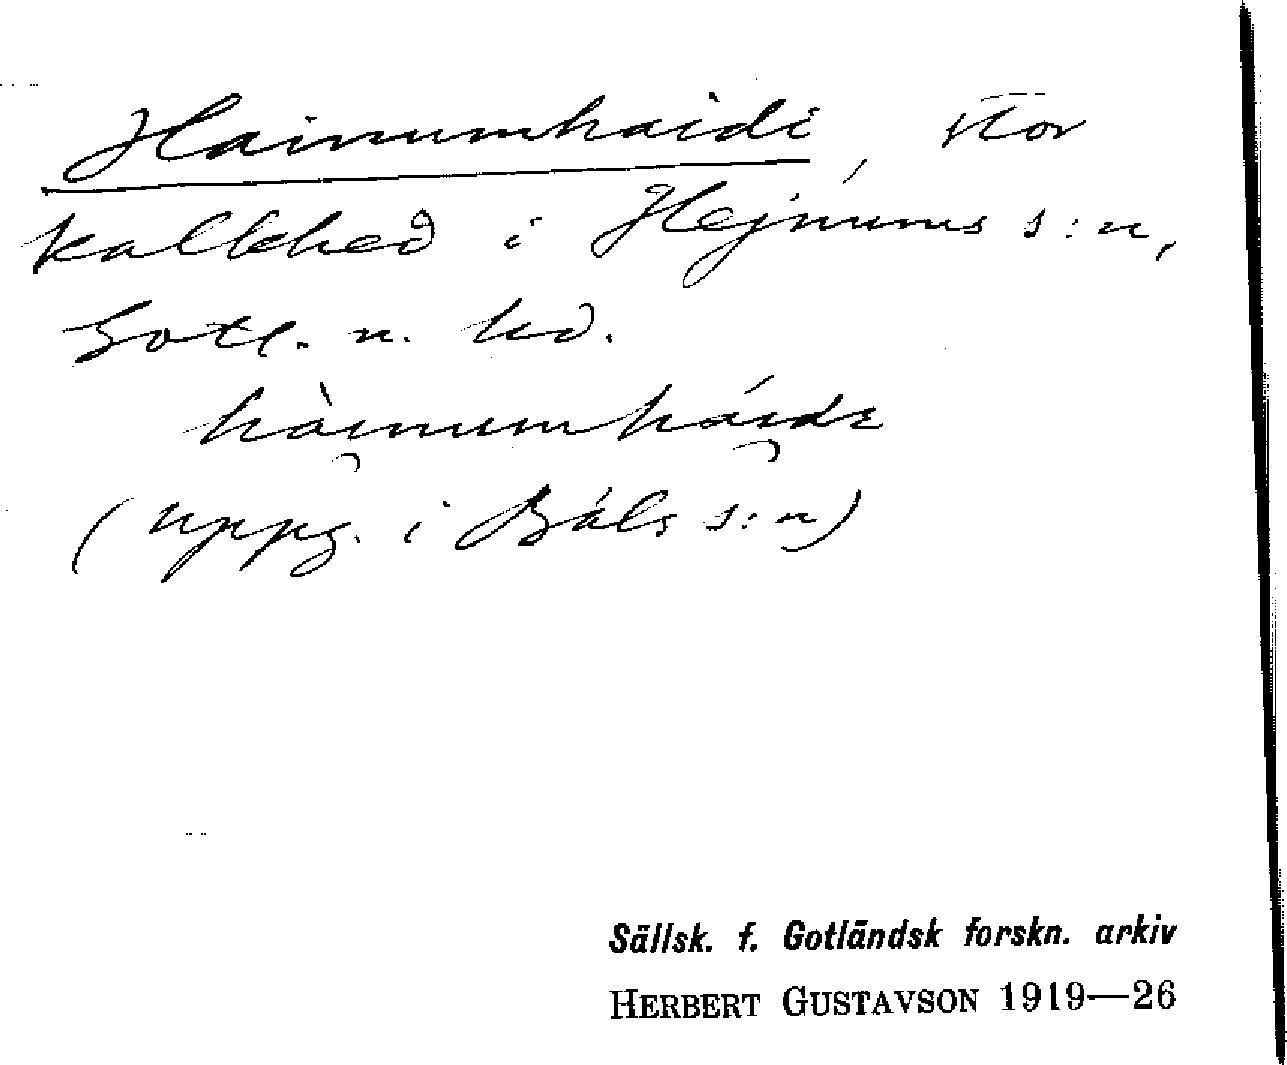 Hainumhaidi, stor
kalkhed i Hejnums s:n,
Gotl. n. hd.
hàinumháidi
(uppg. i Bäls s:n)
Sällsk. f. Gotländsk forskn. arkiv
HERBERT GUSTAVSON 1919—26